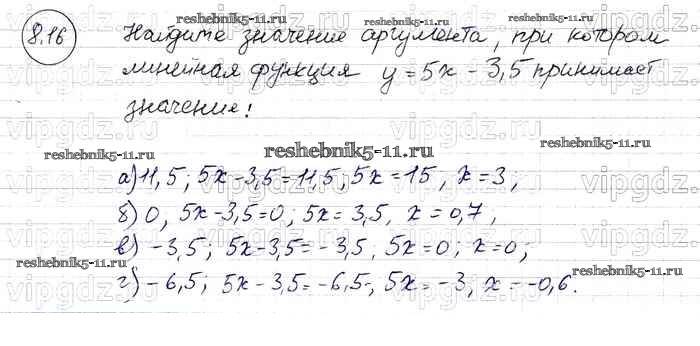 8.16 Найдите значение аргумента, при котором
линейная функция y = 5x - 3,5 принимает
значение:
а) 11,5; 5x - 3,5 = 11,5; 5x = 15, x = 3;
б) 0, 5x - 3,5 = 0; 5x = 3,5, x = 0,7,
в) -3,5; 5x - 3,5 = -3,5, 5x = 0; x = 0;
г) -6,5; 5x - 3,5 = -6,5, 5x = -3, x = -0,6.
reshebnik5-11.ru
reshebnik5-11.ru
reshebnik5-11.ru
reshebnik5-11.ru
reshebnik5-11.ru
reshebnik5-11.ru
vipgdz.ru